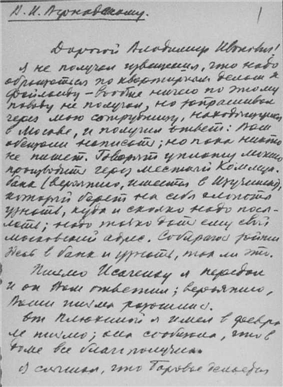 В. И. Вернадскому. 1
Дорогой Владимир Иванович!
Я не получал извещения, что надо
обращаться по квартирным делам к
– вообще ничего по этому
поводу не получал, но запрашивал
через мою сотрудницу, находящуюся
в Москве, и получил ответ: Вам
обещали написать; но пока никто
не пишет. Говорят уплату можно
производить через местный Коммун.
банк (вероятно, имеется в Щучинске),
который берет на себя хлопоты
узнать, куда и сколько надо пос-
лать; надо только дать ему свой
московский адрес. Собираюсь пойти
в банк и узнать, так ли это.
Письмо Исаченку я передал
и он Вам ответил; вероятно,
Вами письма получены.
От я имел в февра-
ле письмо; она сообщила, что в
доме все благополучно.
Я слышал, что Боровое